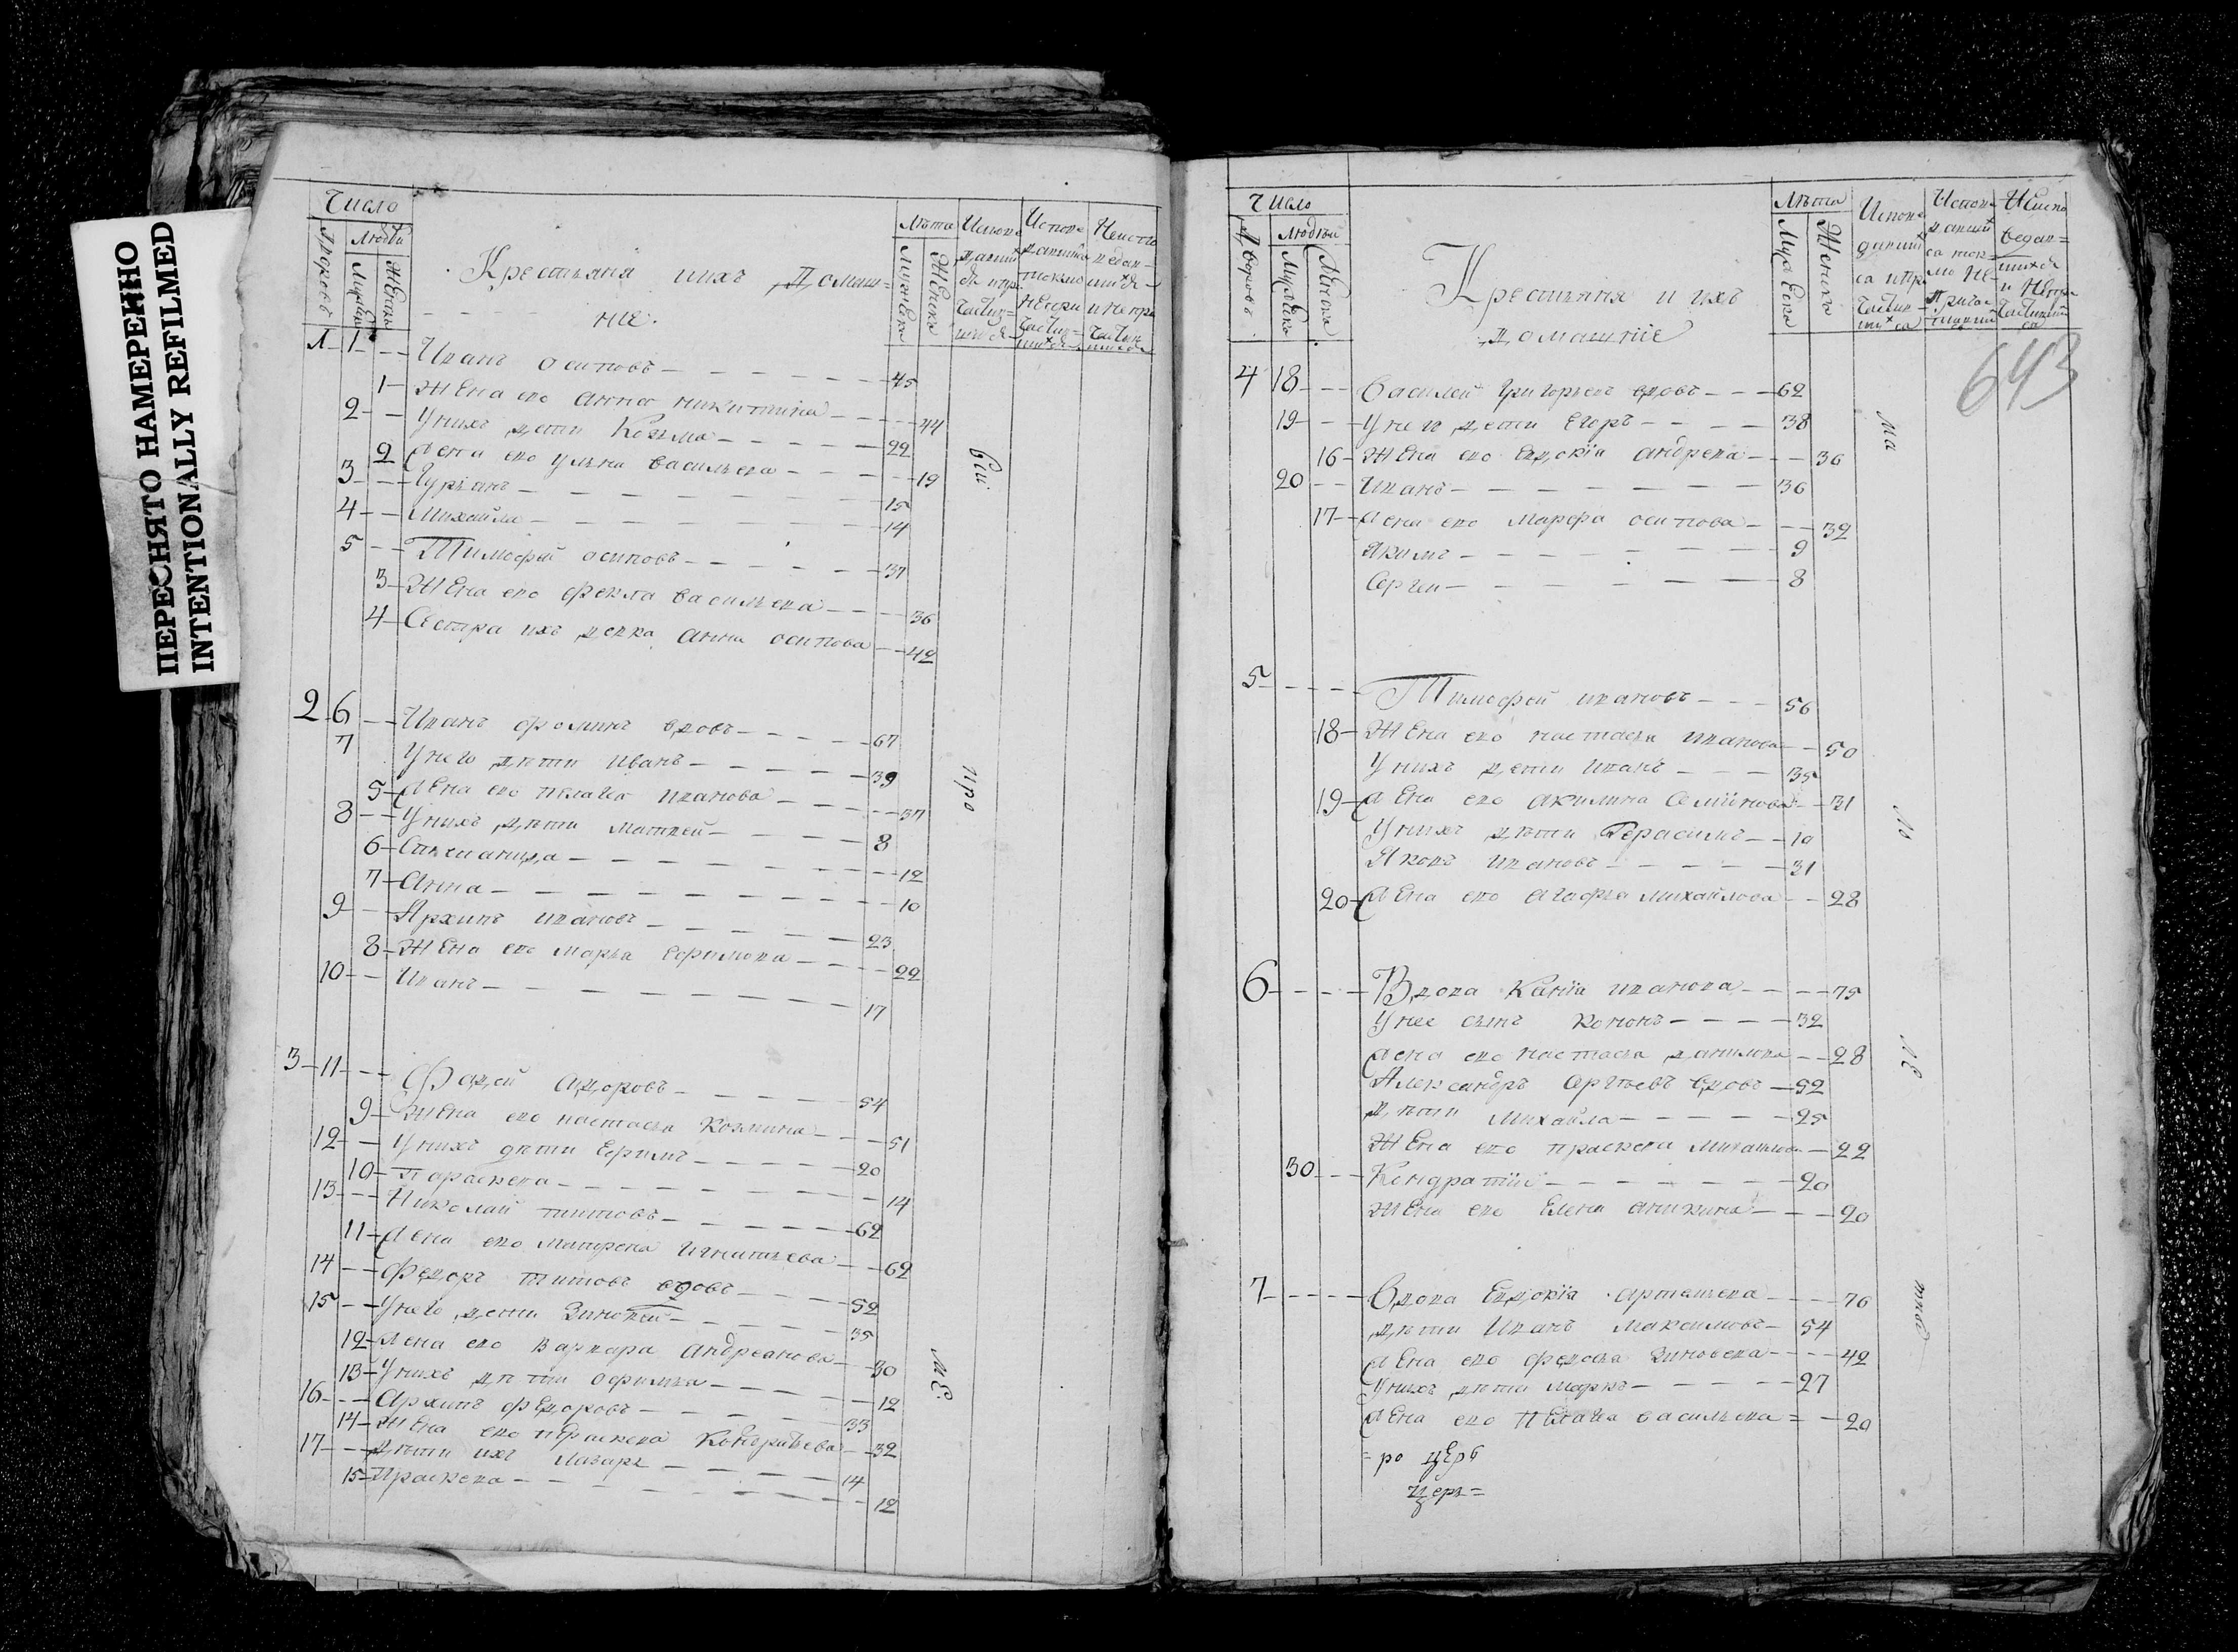 ПЕРЕСНЯТО НАМЕРЕННО
INTENTIONALLY REFILMED
Число
Дворовъ
Людей
Мужеск
Женск
Крестьяня ихъ Домаш=
ніе.
Лѣта
Мужеска
Женска
1 1 Иванъ осиповъ 45
1 Жена его анна никитина 44
2 У нихъ дети Козма 22
2 Жена его ульяна васильева 19
3 Гурьянъ 15
4 Михайла 14
5 Тимофей осиповъ 37
3 Жена его фекла васильева 36
4 Сестра ихъ девка анна осипова 42
2 6 Иванъ фоминъ вдовъ 67
7 У него дѣти иванъ 39
5 Жена его пелагея иванова 37
8 У нихъ дѣти матвей 8
6 Степанида 12
7 Анна 10
9 Архипъ ивановъ 23
8 Жена его марья ефимова 22
10 Иванъ 17
3 11 Фадей адоровъ 54
9 Жена его настасья Козмина 51
12 У нихъ дѣти Ефимъ 20
10 Параскева 14
13 Николай титовъ 62
11 Жена его матрена игнатьева 62
14 Федоръ титовъ вдовъ 52
15 У него дети Зиновей 35
12 Жена его варвара андреанова 30
13 У нихъ дѣти офимья 12
16 Архипъ федоровъ 33
14 Жена его праскева Кондратьева 32
17 дѣти ихъ Лазарь 14
15 Праскева 12
Бы
про
МЕ
Число
Дворовъ
Людей
Мужеска
Женска
Крестьяня и ихъ
домашніе
Лѣта
Мужеска
Женска
643
4 18 Василей григорьевъ вдовъ 62
19 У него дети Егоръ 38
16 Жена его Евдокія андрева 36
20 Иванъ 36
17 Жена его марфа осипова 32
Якимъ 9
Сергеи 8
5 Тимофей ивановъ 56
18 Жена его настасья иванова 50
У нихъ дети иванъ 35
19 Жена его акилина Семіонова 31
У нихъ дѣти Герасимъ 10
Яковъ ивановъ 31
20 Жена его агафья михайлова 28
6 Вдова Ксенія иванова 75
У нее сынъ кононъ 32
Жена его настасья данилова 28
Александръ Сергѣевъ вдовъ 52
дѣти Михайла 25
Жена его праскева Михайлова 22
30 Кондратіи 20
Жена его Елена аникина 20
7 Вдова Евдокія артемьева 76
дѣти Иванъ максимовъ 54
Жена его федосья Зиновева 42
У нихъ дѣти маркъ 27
Жена его Пелагея васильева 20
= ро церь
церь=
ма
ло
ЛЕ